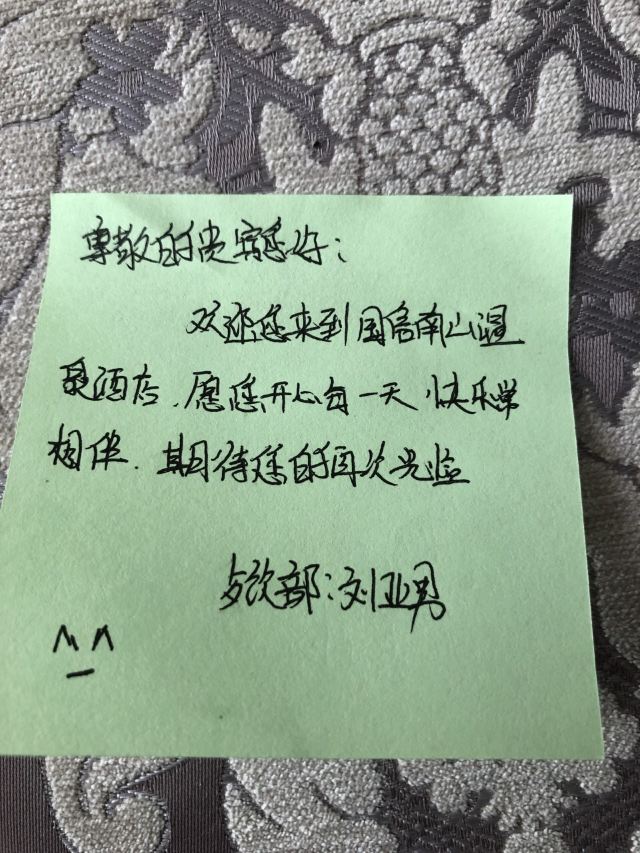 尊敬的贵宾您好：
欢迎您来到国信南山温
泉酒店.愿您开心每一天,快乐常
相伴.期待您的再次光临
部:刘亚男